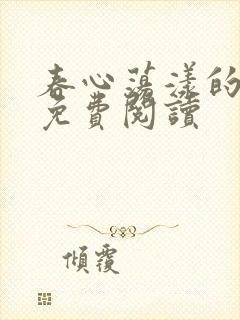 春心蕩漾的
免費閱讀
傾覆